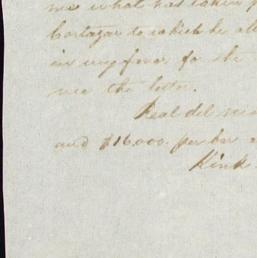 me what has taken
Cortazar to which he
in my favor for the
via the
Real del
and $16,000. per bar
Kind